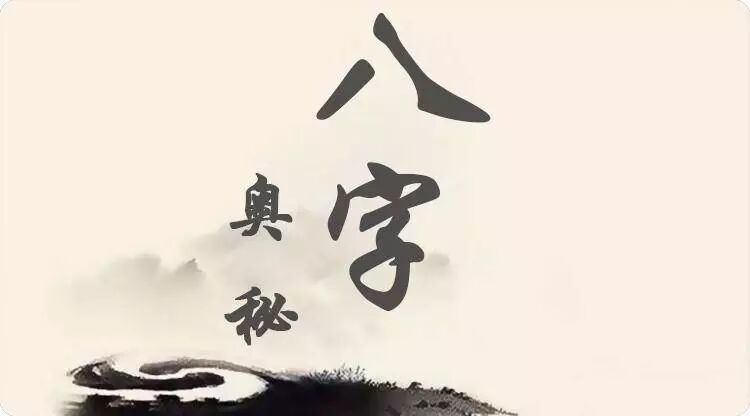 八字
奥秘